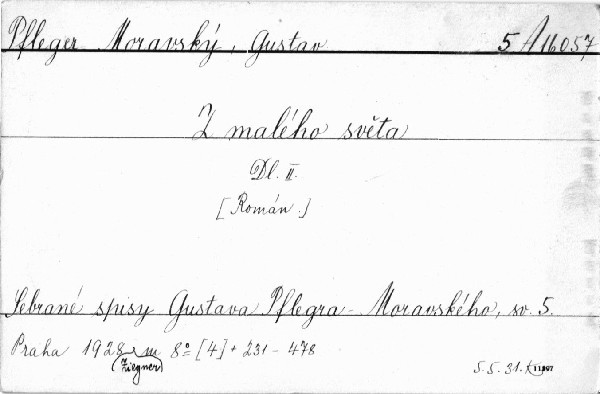 Pfleger Moravský, Gustav 5 A 16057
Z malého světa
Dl. II.
[Román.]
Sebrané spisy Gustava Pflegra-Moravského, sv. 5.
Praha 1928 m 8° [4] + 231-478
(Ziegner)
5.5.31. K 11897